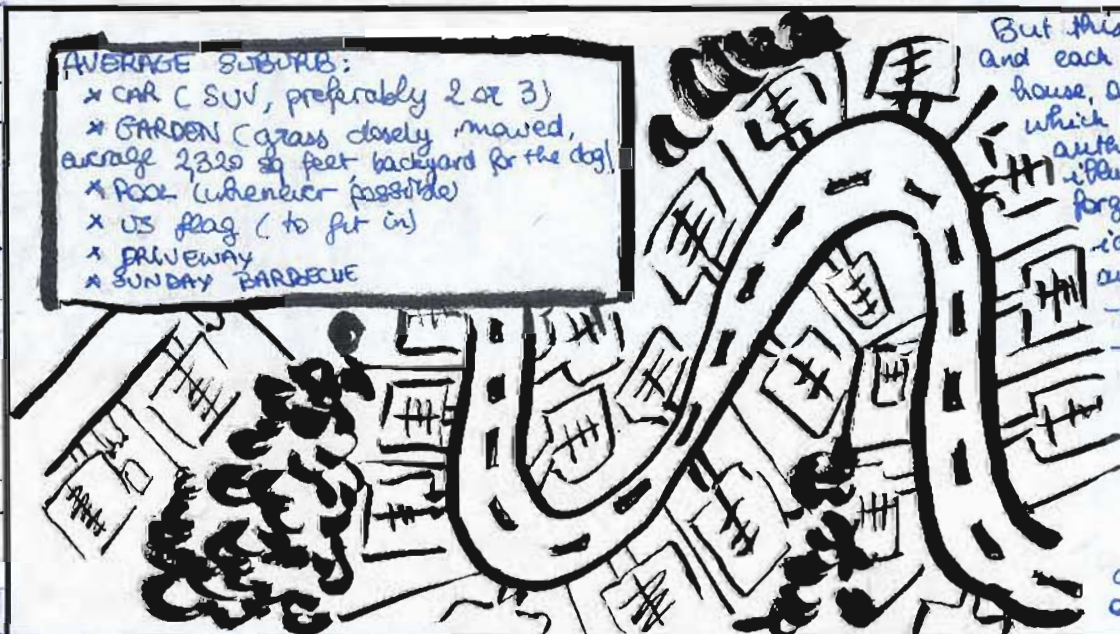 AVERAGE SUBURB:
* CAR (SUV, preferably 2 or 3)
* GARDEN (grass closely mowed,
average 2,320 sq feet, backyard for the dog)
* POOL (whenever possible)
* US flag (to fit in)
* DRIVEWAY
* SUNDAY BARBECUE
But this
and each
house, a
which
auth